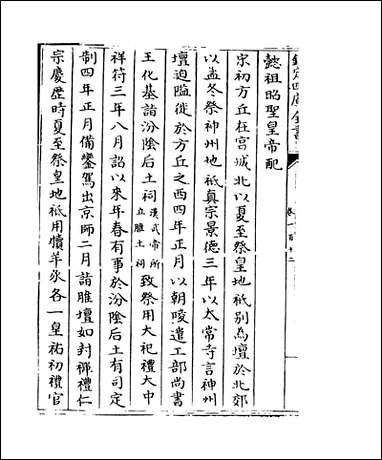 欽定四庫全書
卷一百十二
懿祖昭聖皇帝配
宋初方丘在宫城北以夏至祭皇地祇别為壇於北郊
以孟冬祭神州地祇真宗景德三年以太常寺言神州
壇迫隘徙於方丘之西四年正月以朝陵遣工部尚書
王化基詣汾陰后土祠漢武帝所立脽土祠致祭用大祀禮大中
祥符三年八月詔以來年春有事於汾陰后土有司定
制四年正月備鑾駕出京師二月詣脽壇如封禪禮仁
宗慶歴時夏至祭皇地祇用犢羊豕各一皇祐初禮官